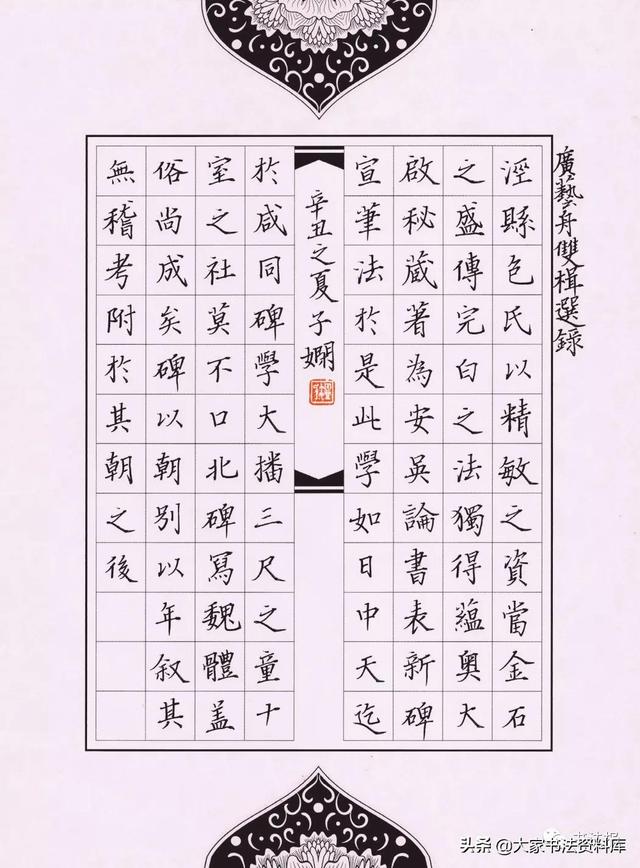 廣藝舟雙楫選錄
涇縣包氏以精敏之資當金石
之盛傳完白之法獨得蘊奧大
啟秘蔵著為安吳論書表新碑
宣筆法於是此學如日中天迄
辛丑之夏子嫻
於咸同碑學大播三尺之童十
室之社莫不口北碑寫魏體盖
俗尚成矣碑以朝別以年叙其
無稽考附於其朝之後
书法报
头条 @大家书法资料库